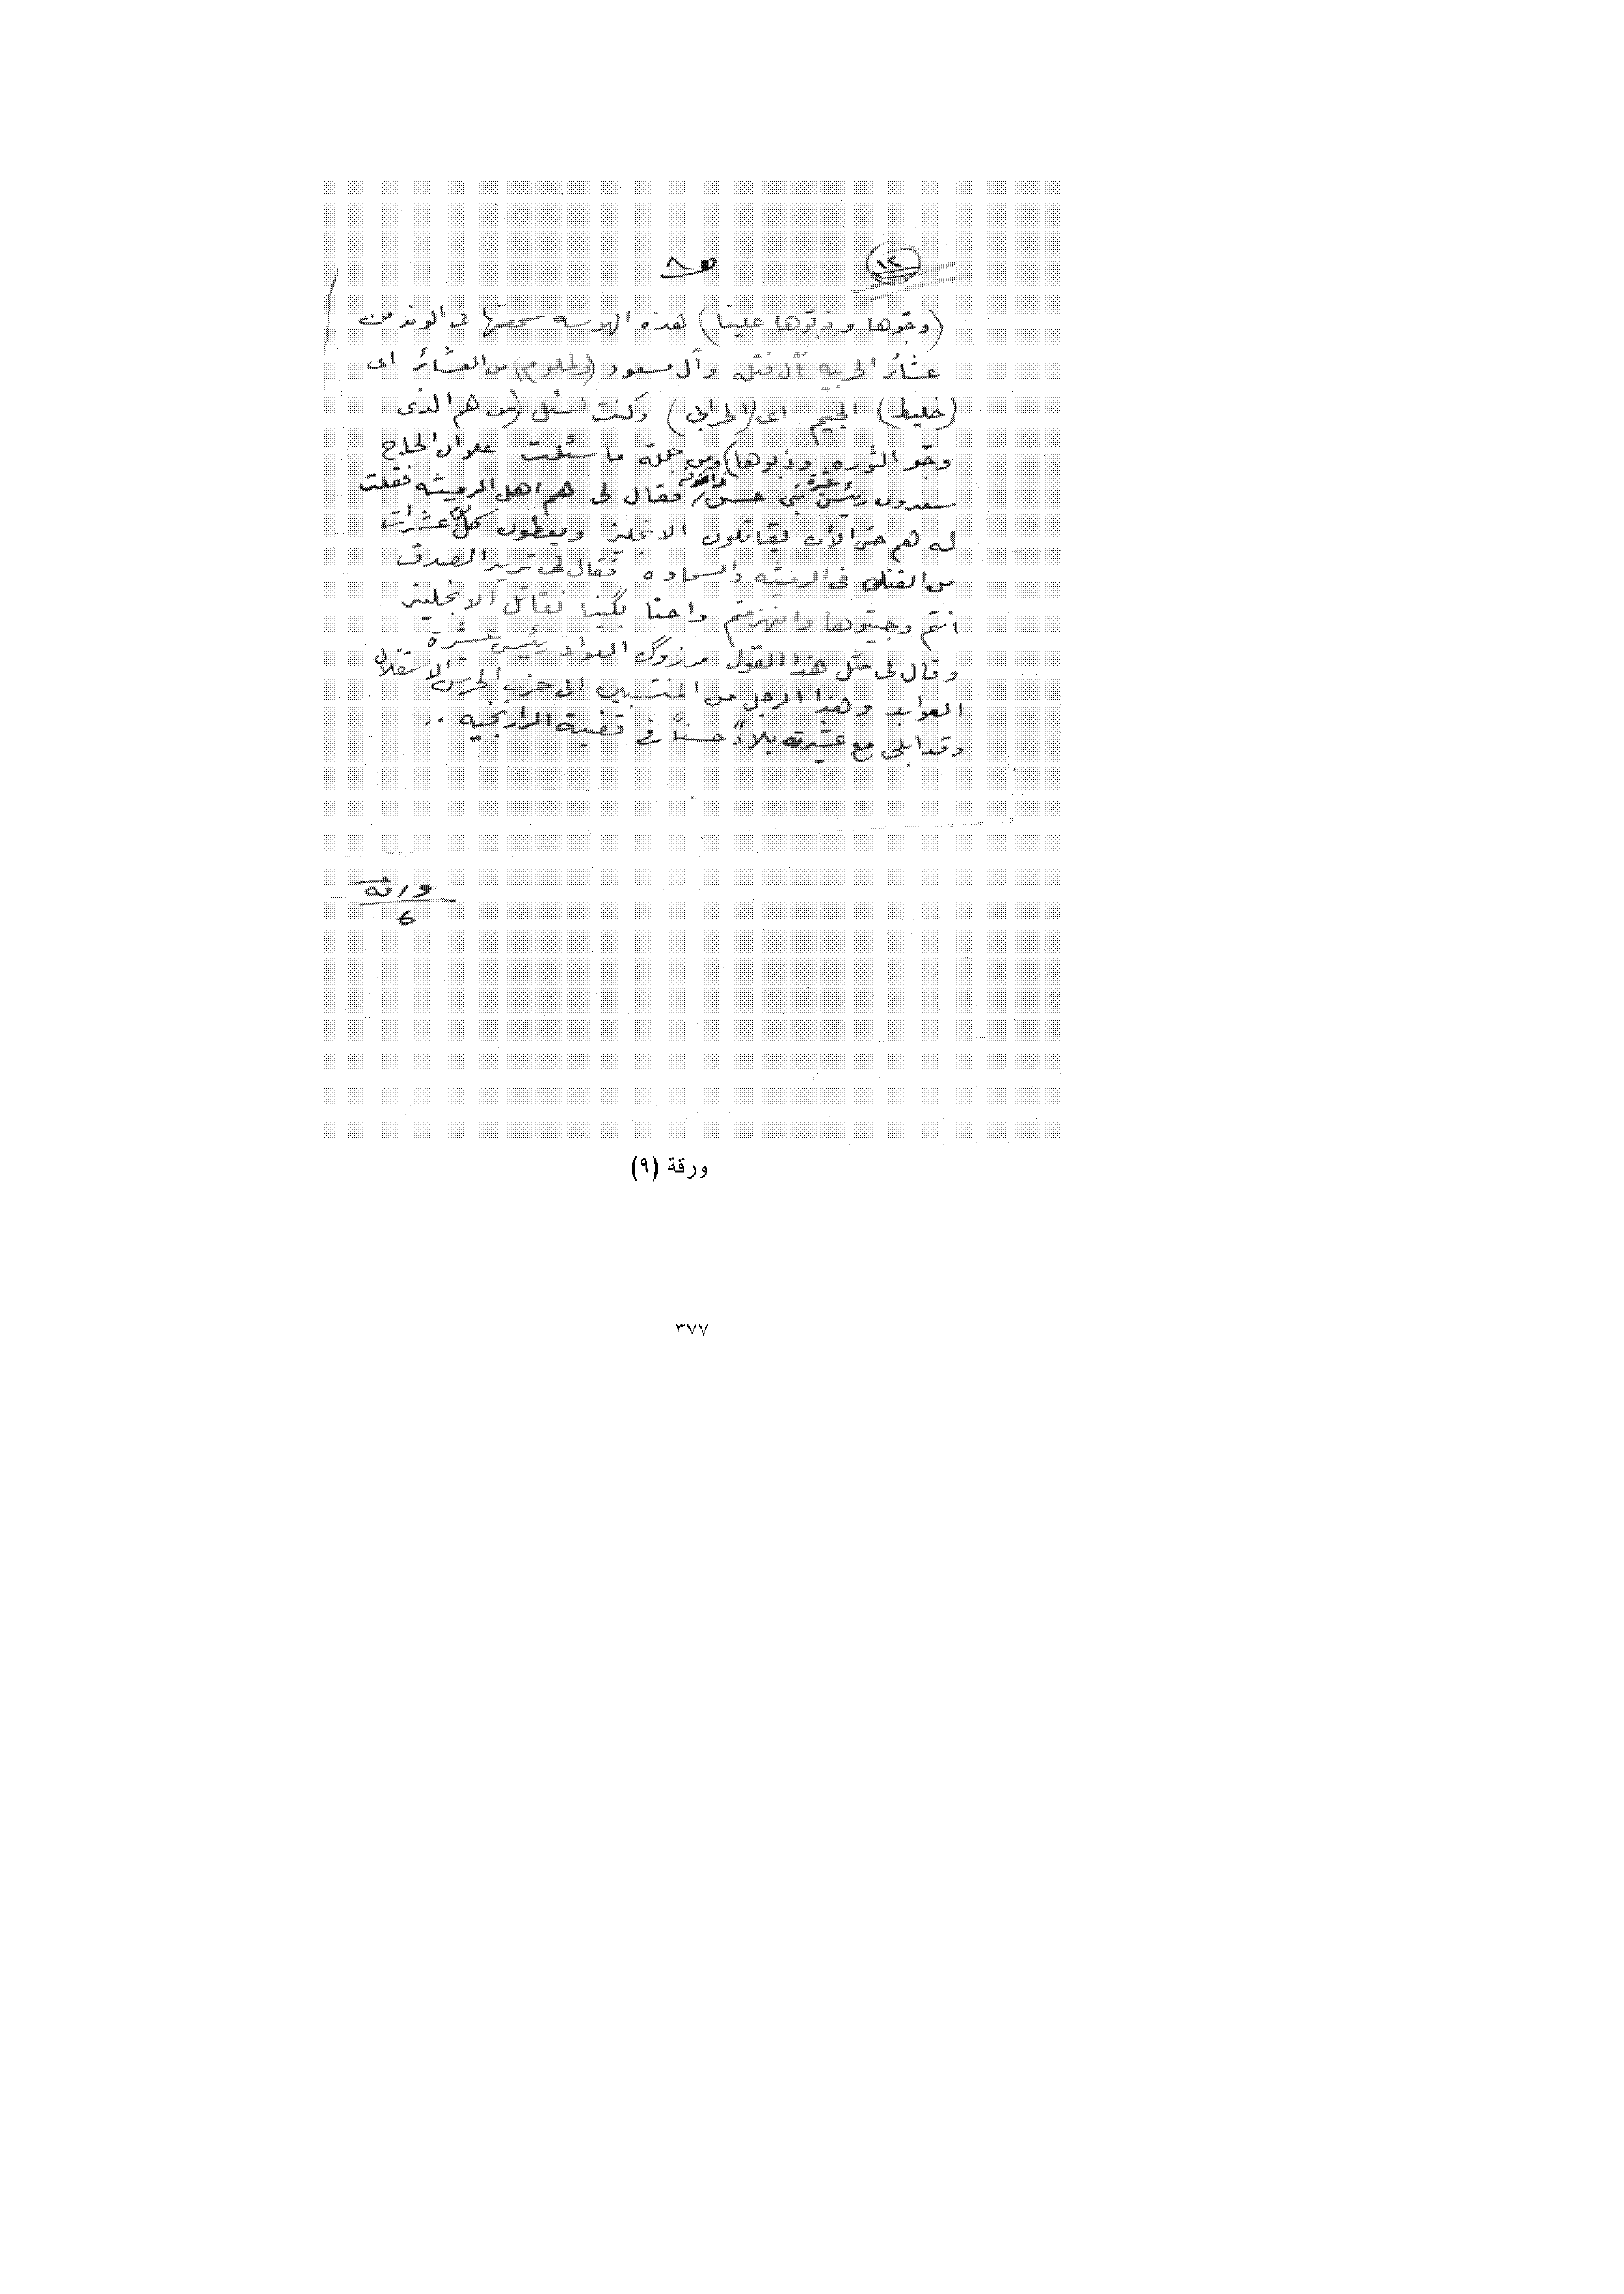 ١٢
٨
(وجّوها وذبّوها علينا) هذه الهوسه سمعتها فى الوند من
عشائر الحربيه آل فتله وآل مسعود (ولملوم) من العشائر اى
(خليط) الجيم اى (الحرابى) وكنت اسئل (من هم الذى
وجّو الثوره وذبوها) ومن جملة ما سئلت علوان الحاج
سعدون رئيس عشرة بنى حسن فقال لى هم اهل الرميثه فقلت
له هم حتى الأن يقاتلون الانجليز ويعطون كل يوم عشرات
من القتلى فى الرميثه والسماده فقال لى تريد الصدق
انتم وجيتوها وانهزمتم واحنا بگينا نقاتل الانجليز
وقال لى مثل هذا القول مرزوگ العواد رئيس عشرة
العوابد وهذا الرجل من المنتسبين الى حزب الحرس الاستقلال
وقد ابلى مع عشيرته بلاءً حسناً فى قضية الرارنجيه ..
ورقه
6
ورقة (٩)
٣٧٧